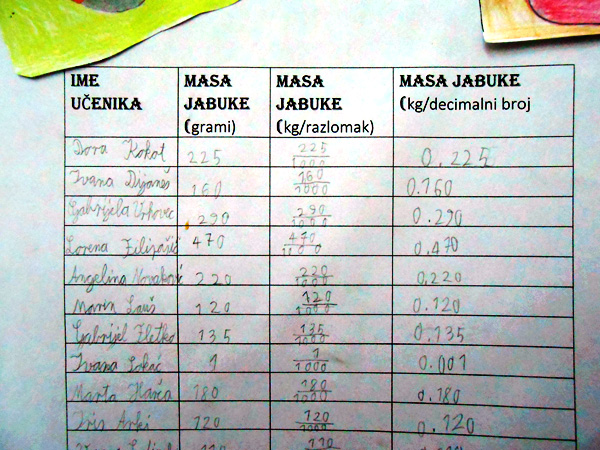 IME UČENIKA MASA JABUKE (grami) MASA JABUKE (kg/razlomak) MASA JABUKE (kg/decimalni broj
Dora Kokot 225 225/1000 0.225
Ivana 160 160/1000 0.160
Gabrijela Vrhovec 290 290/1000 0.290
Lorena 470 470/1000 0.470
Angelina Novaković 220 220/1000 0,220
Maren Lauš 120 120/1000 0.120
Gabrijel Fletko 135 135/1000 0.135
Ivana 1 1/1000 0.001
Marta 180 180/1000 0.180
Iris Arki 120 120/1000 0.120
110